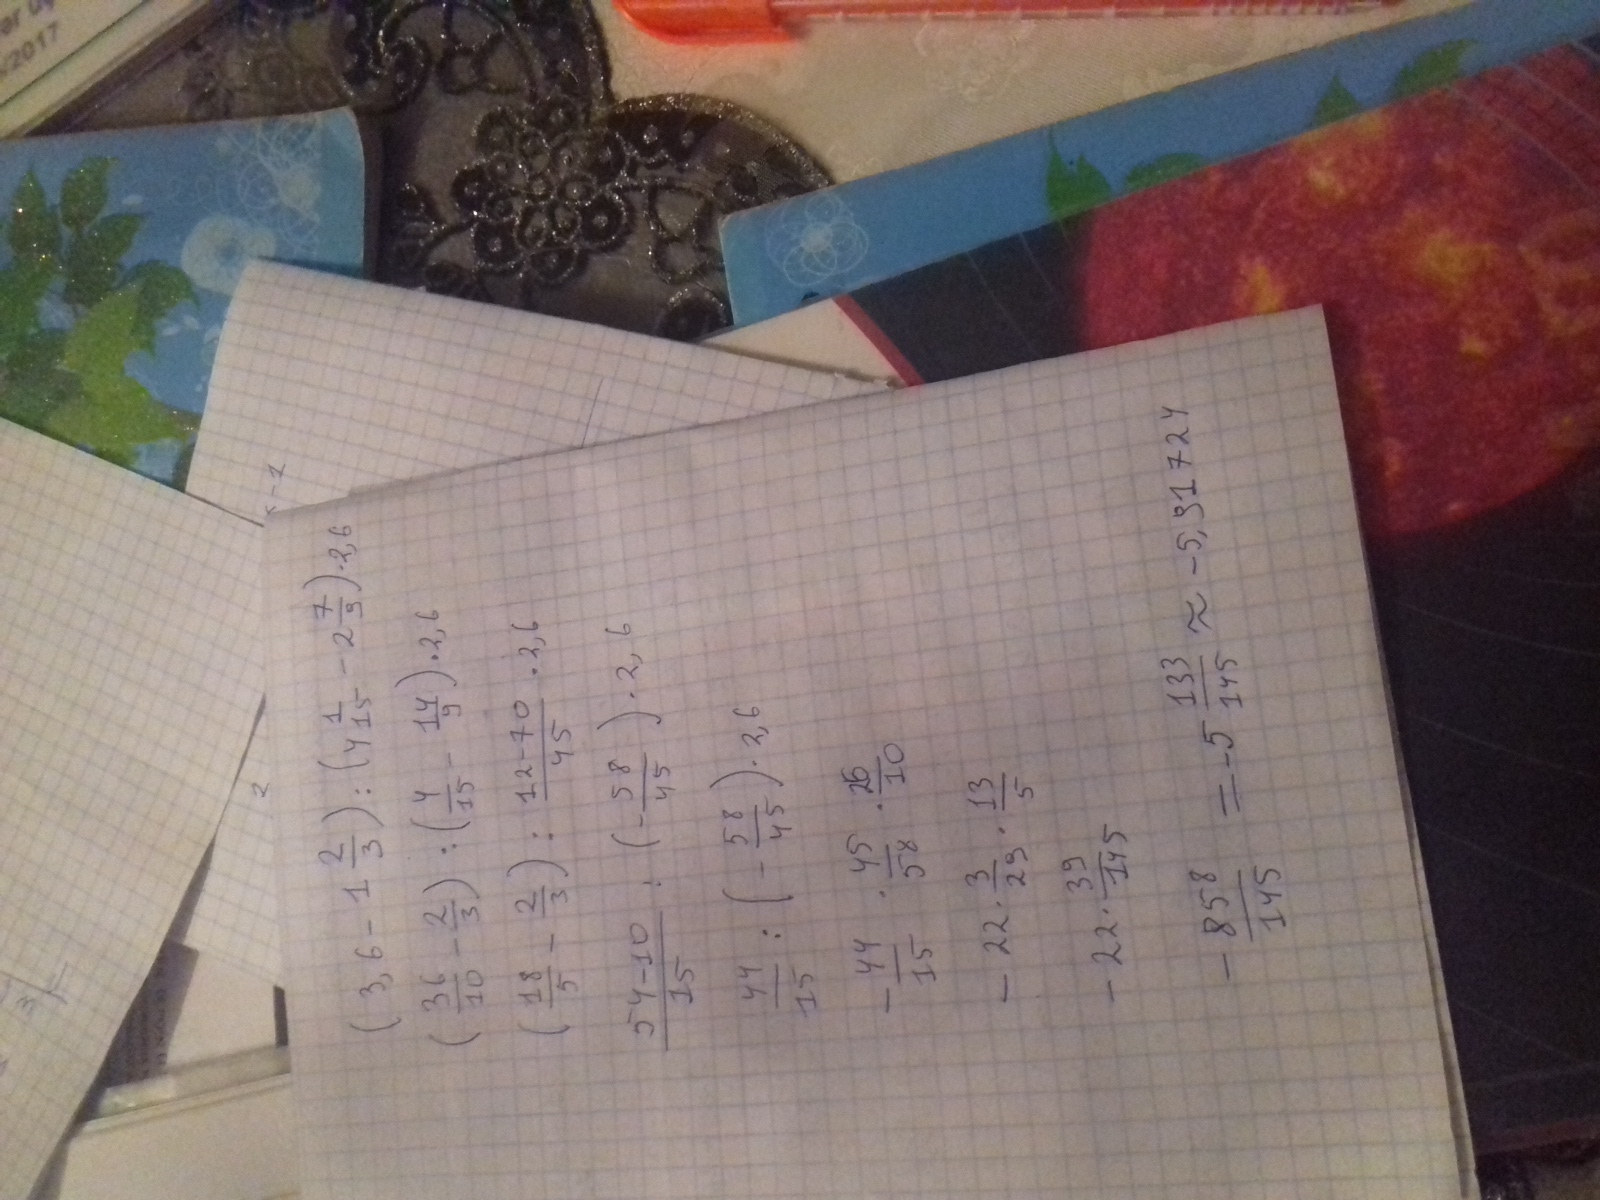 (3,6 - 1 2/3) : (4 1/15 - 2 7/9) · 2,6
(36/10 - 2/3) : (4/15 - 14/9) · 2,6
(18/5 - 2/3) : 12-70/45 · 2,6
54-10/15 : (- 58/45) · 2,6
44/15 : (- 58/45) · 2,6
- 44/15 · 45/58 · 26/10
- 22 · 3/29 · 13/5
- 22 · 39/145
- 858/145 = -5 133/145 ≈ -5,91724
2017